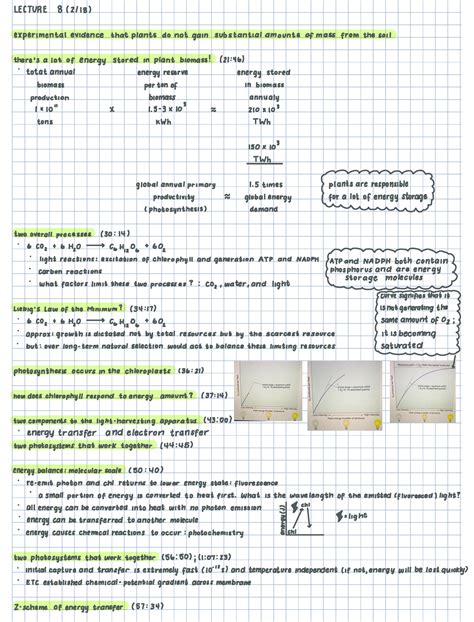 LECTURE 8 (2/18)
experimental evidence that plants do not gain substantial amounts of mass from the soil
there's a lot of energy stored in plant biomass! (21:46)
• total annual energy reserve energy stored
biomass per ton of in biomass
production biomass annually
1 x 10¹¹ x 1.5-3 x 10³ ≈ 210 x 10³
tons kWh TWh
150 x 10³
TWh
global annual primary 1.5 times
productivity ≈ global energy
(photosynthesis) demand
plants are responsible
for a lot of energy storage
two overall processes (30:14)
• 6 CO₂ + 6 H₂O → C₆H₁₂O₆ + 6O₂
• light reactions: excitation of chlorophyll and generation ATP and NADPH
• carbon reactions
• what factors limit these two processes? : CO₂, water, and light
ATP and NADPH both contain
phosphorus and are energy
storage molecules
Liebig's Law of the Minimum? (34:17)
• 6 CO₂ + 6 H₂O → C₆H₁₂O₆ + 6O₂
• approx: growth is dictated not by total resources but by the scarcest resource
• but: over long-term natural selection would act to balance these limiting resources
curve signifies that it
is not generating the
same amount of O₂;
it is becoming
saturated
photosynthesis occurs in the chloroplasts (36:21)
how does chlorophyll respond to energy amount? (37:14)
two components to the light-harvesting apparatus (43:00)
• energy transfer and electron transfer
two photosystems that work together (44:45)
energy balance: molecular scale (50:40)
• re-emit photon and chl returns to lower energy state: fluorescence
• a small portion of energy is converted to heat first. What is the wavelength of the emitted (fluoresced) light?
• all energy can be converted into heat with no photon emission
• energy can be transferred to another molecule
• energy causes chemical reactions to occur: photochemistry
energy(J)
chl
chl
= light
two photosystems that work together (56:50); (1:07:23)
• initial capture and transfer is extremely fast and temperature independent (if not, energy will be lost quickly)
• ETC established chemical-potential gradient across membrane
Z-scheme of energy transfer (57:34)